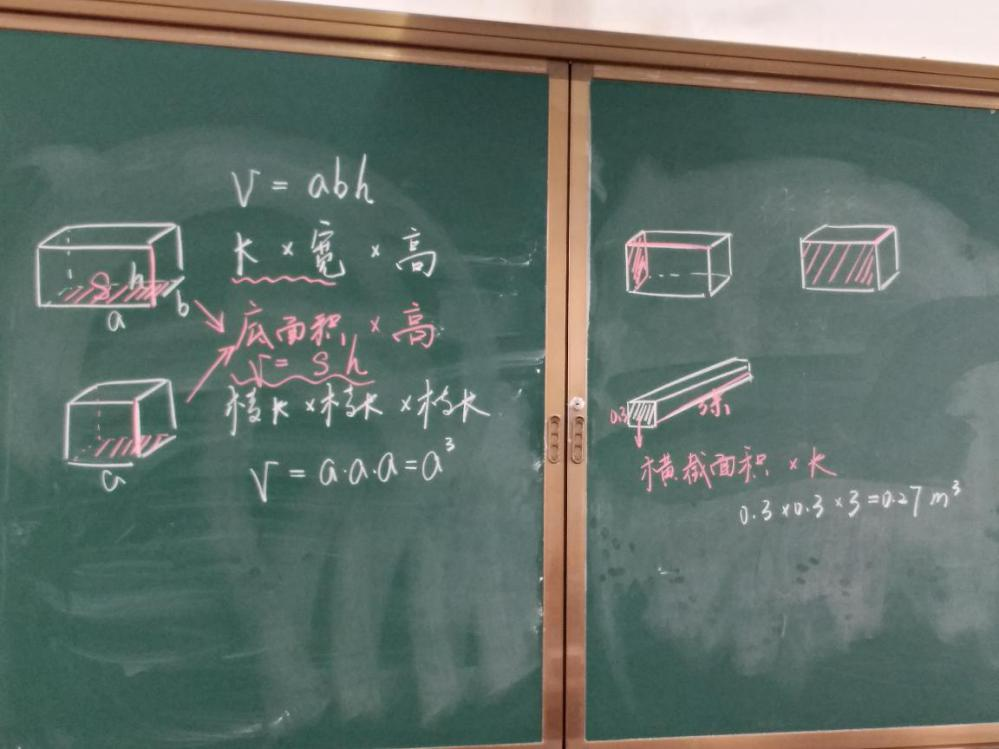 V = abh
长 × 宽 × 高
S h
b
a
底面积 × 高
V = S h
棱长 × 棱长 × 棱长
a
V = a·a·a = a³
0.3
3米
横截面积 × 长
0.3 × 0.3 × 3 = 0.27 m³